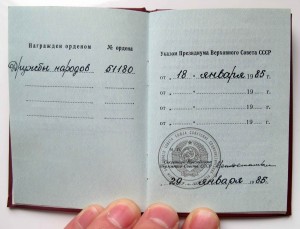 Награжден орденом № ордена
Дружбы народов 51180
Указы Президиума Верховного Совета СССР
от „18“ января 1985г.
от „ “ 19 г.
от „ “ 19 г.
от „ “ 19 г.
Верховного Совета СССР
„29“ января 1985г.